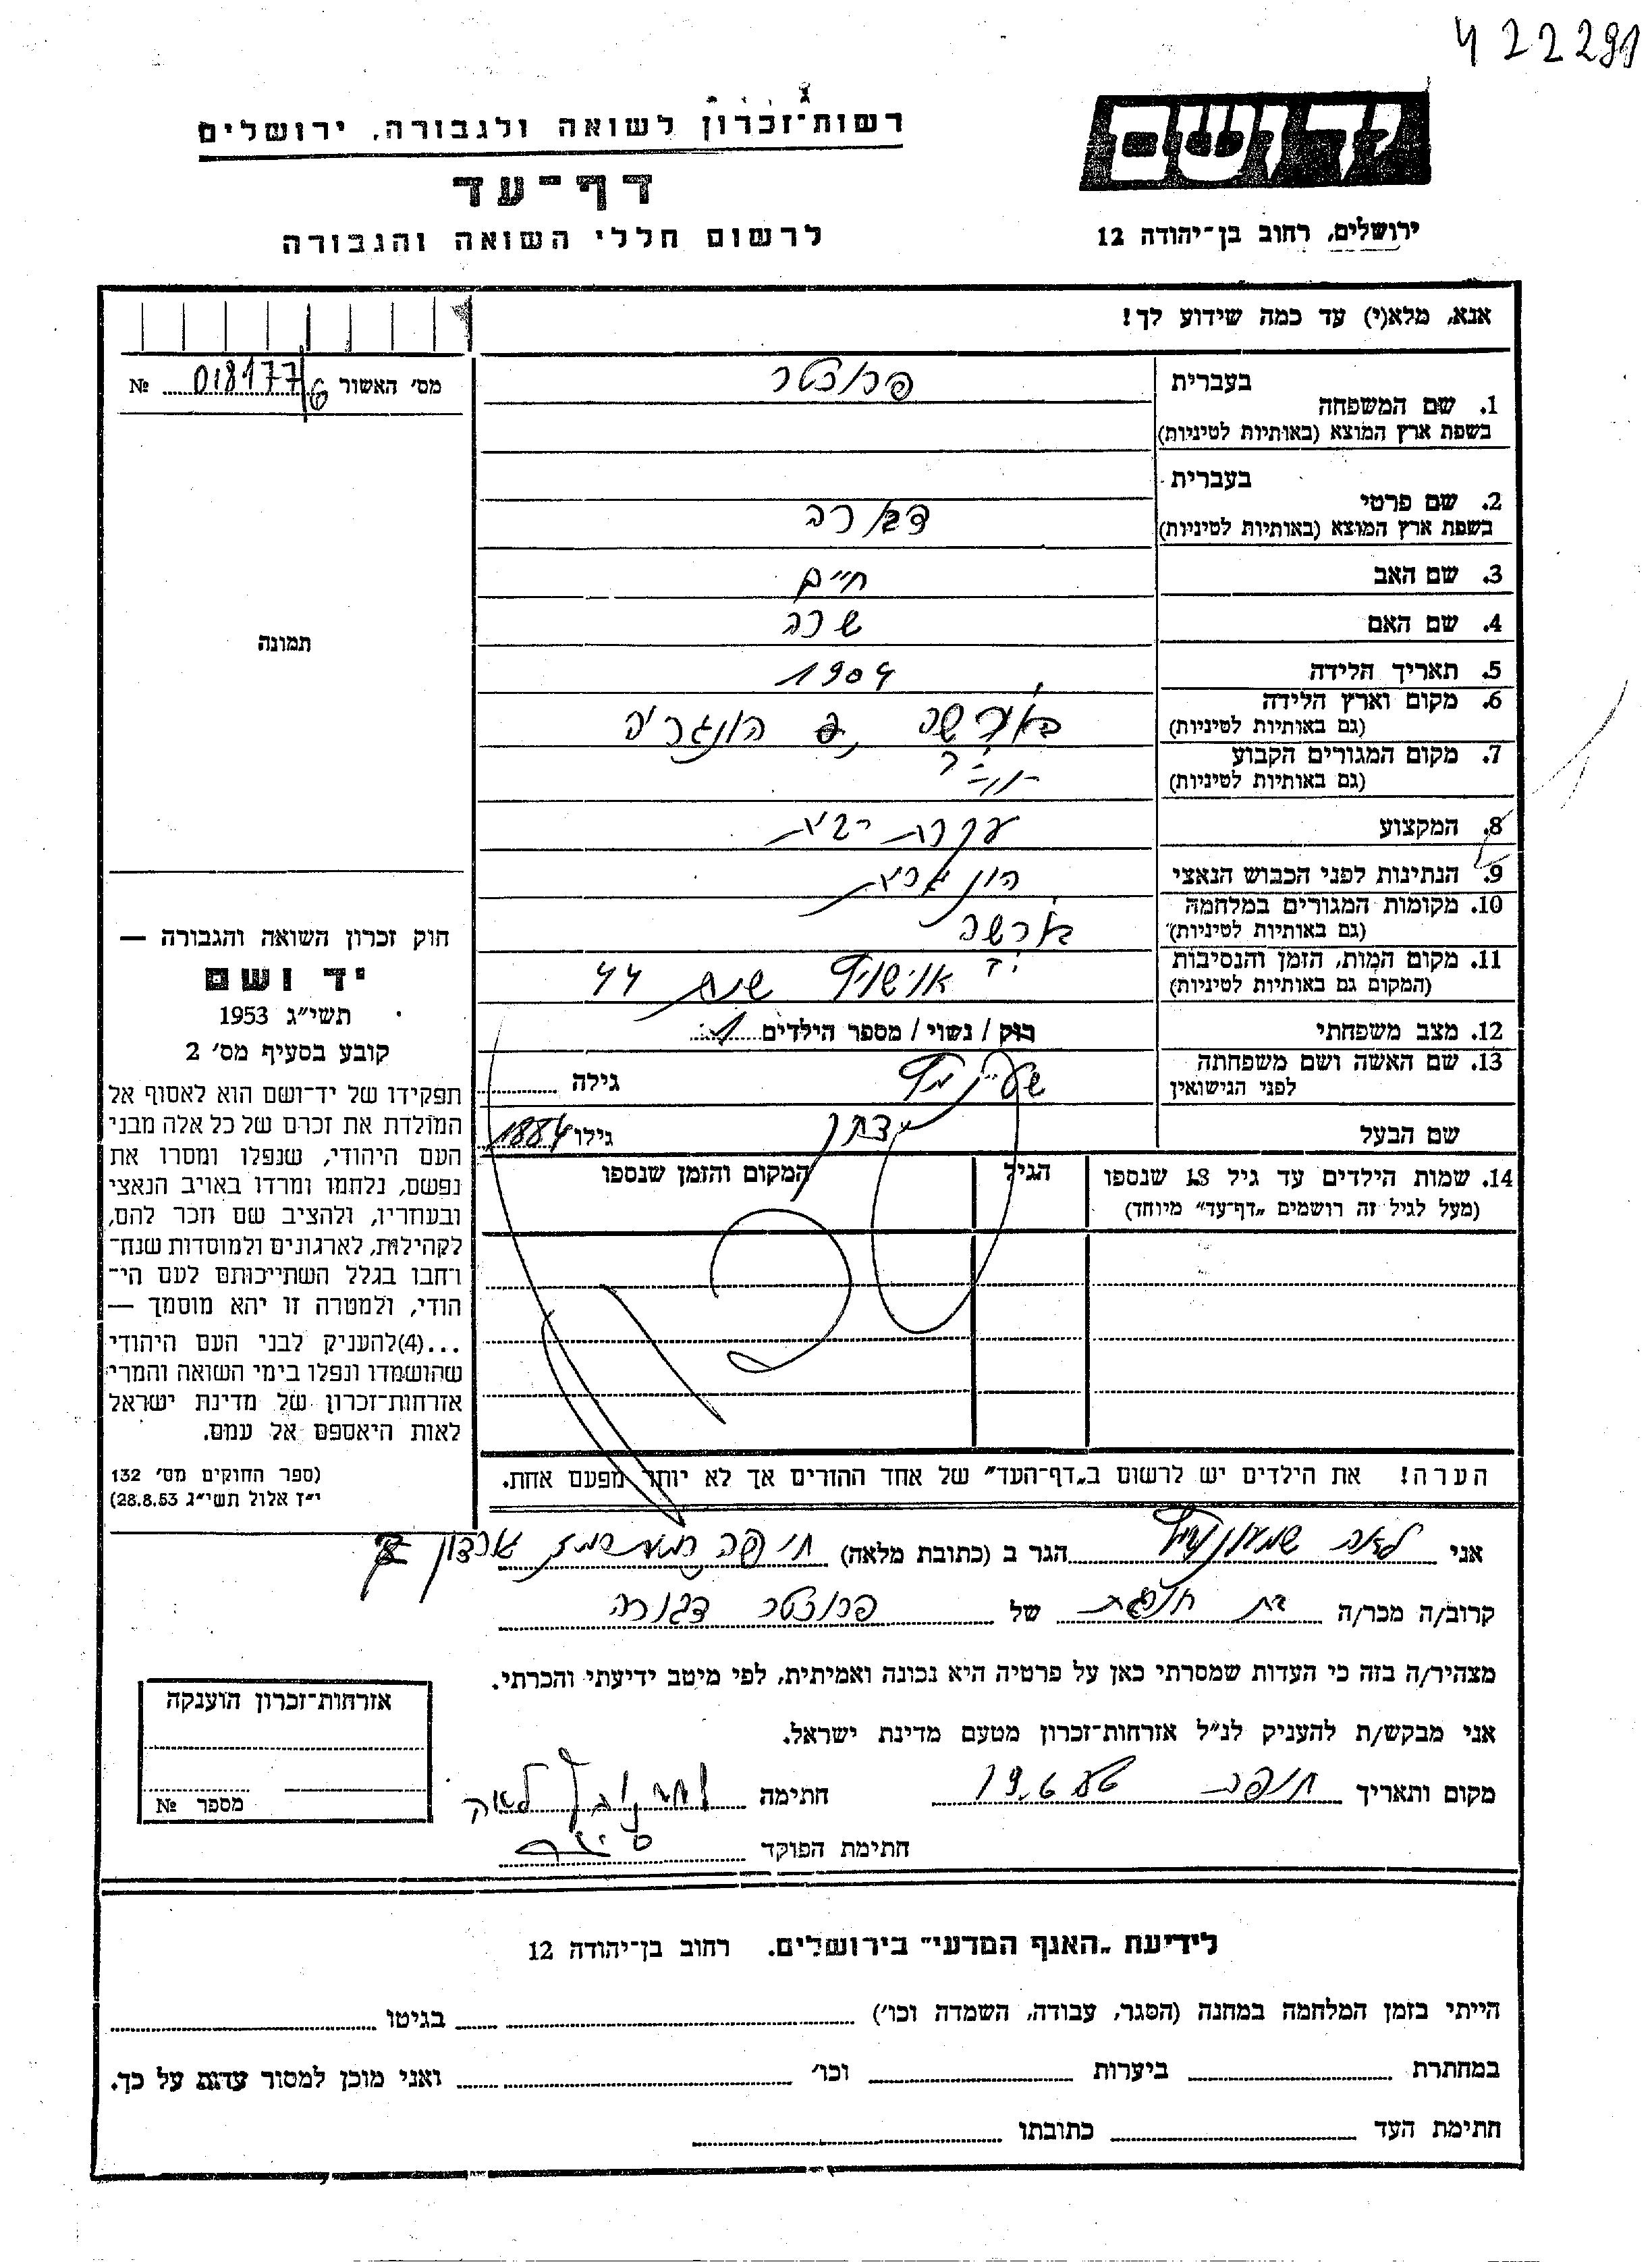 422291
רשות־זכרון לשואה ולגבורה, ירושלים
דף־עד
לרשום חללי השואה והגבורה
ידושם
ירושלים, רחוב בן־יהודה 12
אנא, מלא(י) עד כמה שידוע לך!
מס׳ האשור 018177/6 №
תמונה
בעברית
1. שם המשפחה
בשפת ארץ המוצא (באותיות לטיניות)
בעברית
2. שם פרטי
בשפת ארץ המוצא (באותיות לטיניות)
דבורה
3. שם האב חיים
4. שם האם שרה
5. תאריך הלידה 1904
6. מקום וארץ הלידה הונגריה
(גם באותיות לטיניות)
7. מקום המגורים הקבוע
(גם באותיות לטיניות)
8. המקצוע עקרת בית
9. הנתינות לפני הכבוש הנאצי הונגרית
10. מקומות המגורים במלחמה
(גם באותיות לטיניות)
11. מקום המות, הזמן והנסיבות שנת 44
(המקום גם באותיות לטיניות)
12. מצב משפחתי רוק / נשוי / מספר הילדים 1
13. שם האשה ושם משפחתה גילה
לפני הנישואין
שם הבעל גילו 1884
14. שמות הילדים עד גיל 18 שנספו הגיל המקום והזמן שנספו
(מעל לגיל זה רושמים „דף־עד״ מיוחד)
חוק זכרון השואה והגבורה —
יד ושם
תשי״ג 1953
קובע בסעיף מס׳ 2
תפקידו של יד־ושם הוא לאסוף אל
המולדת את זכרם של כל אלה מבני
העם היהודי, שנפלו ומסרו את
נפשם, נלחמו ומרדו באויב הנאצי
ובעוזריו, ולהציב שם וזכר להם,
לקהילות, לארגונים ולמוסדות שנח־
רחבו בגלל השתייכותם לעם הי־
הודי, ולמטרה זו יהא מוסמך —
...(4)להעניק לבני העם היהודי
שהושמדו ונפלו בימי השואה והמרי
אזרחות־זכרון של מדינת ישראל
לאות היאספם אל עמם.
(ספר החוקים מס׳ 132
י״ז אלול תשי״ג 28.8.53)
הערה! את הילדים יש לרשום ב„דף־העד״ של אחד ההורים אך לא יותר מפעם אחת.
אני לאה הגר ב (כתובת מלאה) חיפה
קרוב/ה מכר/ה של דבורה
מצהיר/ה בזה כי העדות שמסרתי כאן על פרטיה היא נכונה ואמיתית, לפי מיטב ידיעתי והכרתי.
אני מבקש/ת להעניק לנ״ל אזרחות־זכרון מטעם מדינת ישראל.
מקום ותאריך חיפה חתימה לאה
חתימת הפוקד
אזרחות־זכרון הוענקה
מספר №
לידיעת „האגף המדעי״ בירושלים. רחוב בן־יהודה 12
הייתי בזמן המלחמה במחנה (הסגר, עבודה, השמדה וכו׳) בגיטו
במחתרת ביערות וכו׳ ואני מוכן למסור עדות על כך.
חתימת העד כתובתו